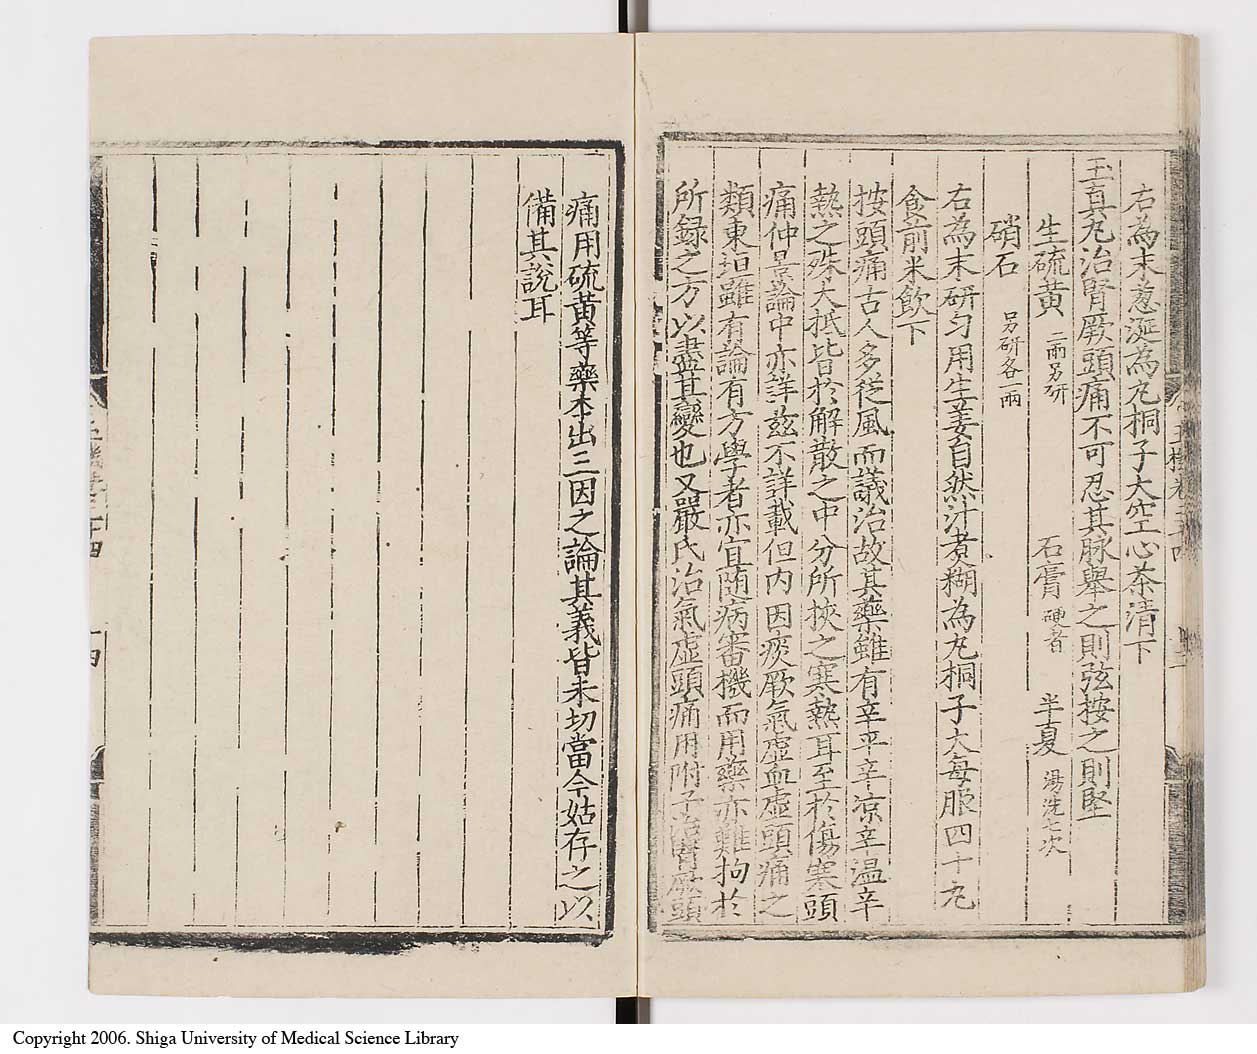 右為末葱涎為丸桐子大空心茶清下
玉真丸治腎厥頭痛不可忍其脉舉之則弦按之則堅
生硫黄 二兩另研 石膏 硬者 半夏 湯洗七次
硝石 另研各一兩
右為末研匀用生姜自然汁煮糊為丸桐子大每服四十丸
食前米飲下
按頭痛古人多從風而議治故其藥雖有辛平辛凉辛温辛
熱之殊大抵皆於解散之中分所挾之寒熱耳至於傷寒頭
痛仲景論中亦詳兹不詳載但内因痰厥氣虚血虚頭痛之
類東垣雖有論有方學者亦宜随病審機而用藥亦難拘於
所録之方以盡其變也又嚴氏治氣虚頭痛用附子治腎厥頭
痛用硫黄等藥本出三因之論其義皆未切當今姑存之以
備其說耳
Copyright 2006. Shiga University of Medical Science Library